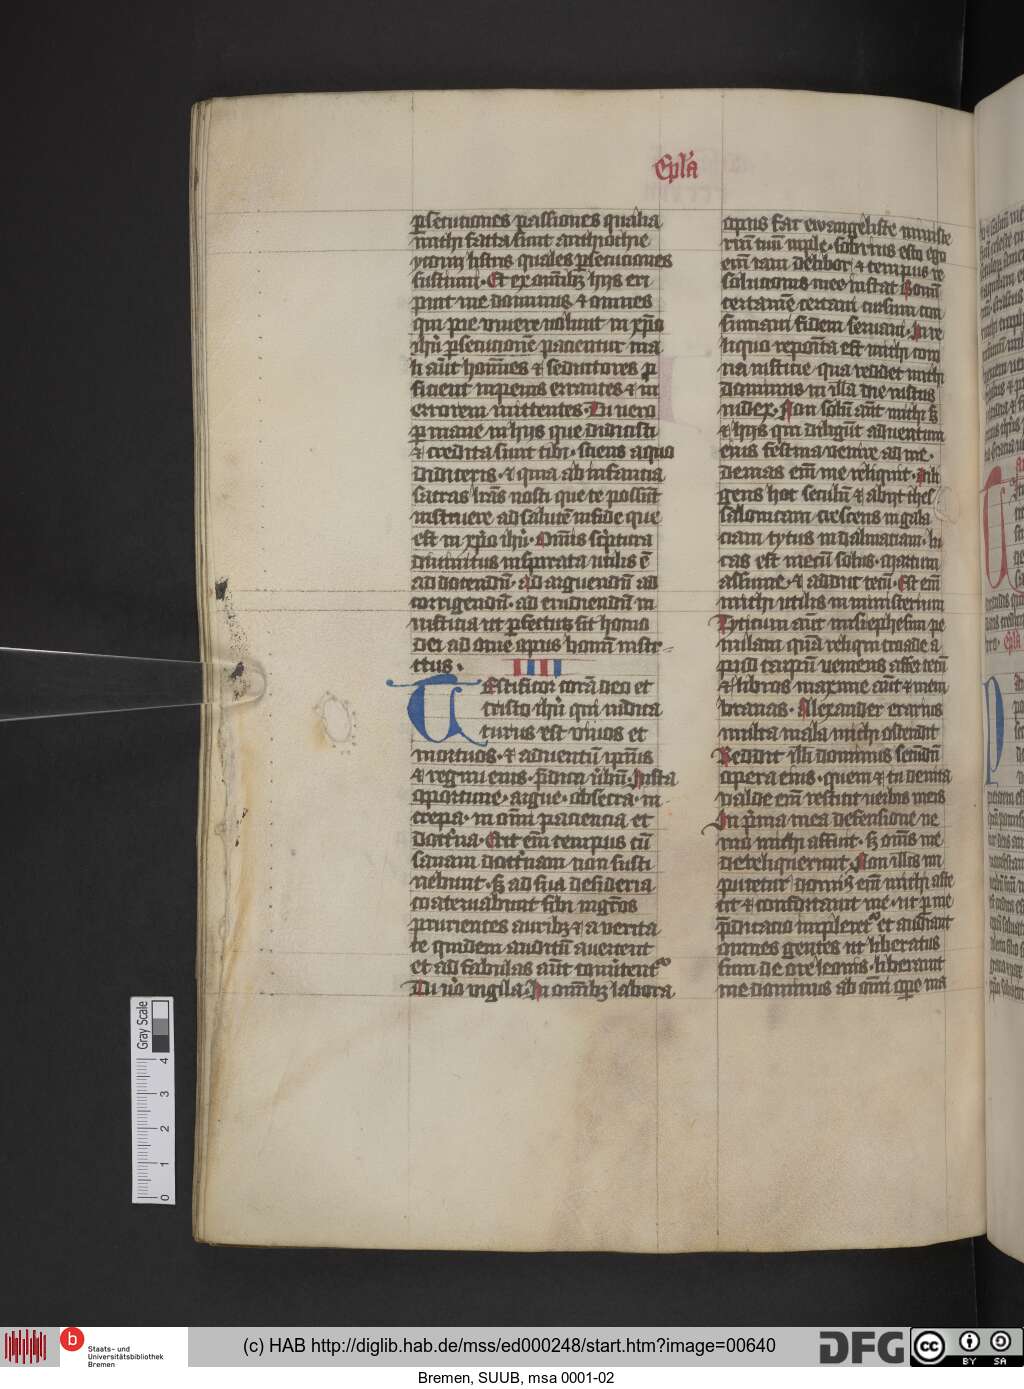 Ep̄la
ꝑsecutiones passiones qualia
michi facta sunt anthiochie
yconii listris quales ꝑsecuciones
sustinui · Et ex om̄ibꝫ hijs eri
puit me dominus ⁊ omnes
qui pie viuere uolunt in xp̄o
ih̄u ꝑsecutionē pacientur ma
li aūt homīes ⁊ seductores ꝓ
ficient in peius errantes ⁊ in
errorem mittentes · Tu uero
ꝑmane in hijs que didicisti
⁊ credita sunt tibi · sciens a quo
didiceris · ⁊ quia ab infantia
sacras lr̄as nosti que te possūt
instruere ad salutē in fide que
est in xp̄o ih̄u · Om̄is sc̄ptura
diuinitus inspirata utilis ē
ad docendū · ad arguendū ad
corrigendū · ad erudiendū in
iusticia ut ꝑfectus sit homo
dei ad om̄e opus bonū instr
ctus · IIII
Testificor corā deo et
cristo ih̄u qui iudica
turus est viuos et
mortuos · ⁊ aduentū ip̄ius
⁊ regnū eius · p̄dica ūbū Insta
oportune · argue · obsecra · in
crepa · in om̄i paciencia et
doct̄na · Erit em̄ tempus cū
sanam doct̄nam non susti
nebunt · sꝫ ad sua desideria
coaceruabunt sibi mgr̄os
prurientes auribꝫ ⁊ a verita
te quidem auditū auertent
et ad fabulas aūt conūtent̄
Tu ūo vigila · In om̄ibꝫ labora
opus fac ewangeliste ministe
riū tuū imple · sobrius esto ego
em̄ iam delibor ⁊ tempus re
solucionis mee instat Bonū
certamē certaui cursum con
sumaui fidem seruaui · In re
liquo reposita est michi coro
na iusticie qua reddet michi
dominus in illa die iustus
iudex · Non solū aūt michi sꝫ
⁊ hijs qui diligūt aduentum
eius festina venire ad me ·
demas em̄ me reliquit · dili
gens hoc seculū ⁊ abijt thes
salonicam crescens in gala
ciam tytus in dalmatiam · lu
cas est mecū solus · marcum
assume · ⁊ adduc tecū · Est em̄
michi utilis in ministerium
Tyticum aūt misi ephesum pe
nulam quā reliqui troade a
pud carpū veniens affer tecū
⁊ libros maxime aūt ⁊ mem
branas · Alexander erarius
multa mala michi ostendit
Reddit illi dominus secundū
opera eius · quem ⁊ tu deuita
valde em̄ restitit uerbis meis
In p̄ima mea defensione ne
mo michi affuit · sꝫ om̄s me
dereliquerunt · Non illis im
putetur domin̄s em̄ michi aste
tit ⁊ confortauit me · ut ꝑ me
p̄dicatio impleret̄ et audiant
omnes gentes ut liberatus
sum de ore leonis · liberauit
me dominus ab om̄i opere ma
Gray Scale
0 1 2 3 4
b Staats- und
Universitätsbibliothek
Bremen
(c) HAB http://diglib.hab.de/mss/ed000248/start.htm?image=00640
DFG
cc BY SA
Bremen, SUUB, msa 0001-02